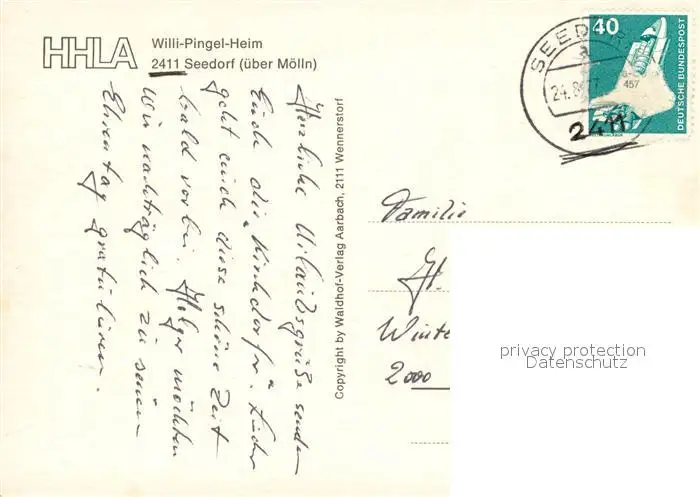 HHLA
Willi-Pingel-Heim
2411 Seedorf (über Mölln)
Herzliche Urlaubsgrüße senden
Euch die "Kirchdorfer". Leider
geht auch diese schöne Zeit
bald vorbei. Holger möchten
wir nachträglich zu seinem
Ehrentag gratulieren.
Copyright by Waldhof-Verlag Aarbach, 2111 Wennerstorf
SEEDORF
24.8.77
457
2411
40
DEUTSCHE BUNDESPOST
Familie
H.
Winte
2000
privacy protection
Datenschutz